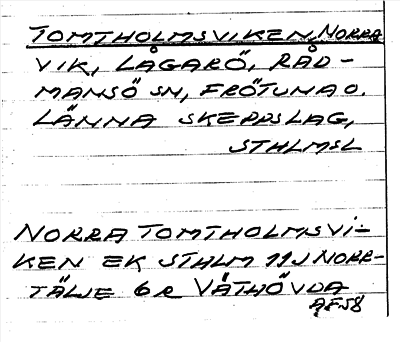 TOMTHOLMSVIKEN, NORRA
VIK, LÅGARÖ, RÅD-
MANSÖ SN, FRÖTUNA O.
LÄNNA SKEPPSLAG,
STHLMSL
NORRA TOMTHOLMSVI-
KEN EK STHLM 11J NORR-
TÄLJE 6R VÄTHÖVDA
AF58